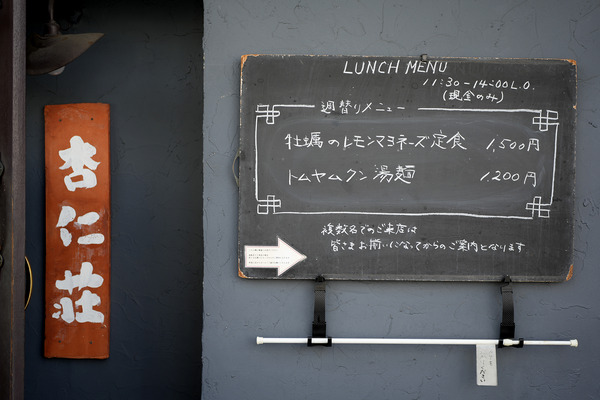 杏仁荘
LUNCH MENU
11:30-14:00 L.O.
(現金のみ)
週替りメニュー
牡蠣のレモンマヨネーズ定食 1,500円
トムヤムクン湯麺 1,200円
複数名でのご来店は
皆さまお揃いになってからのご案内となります